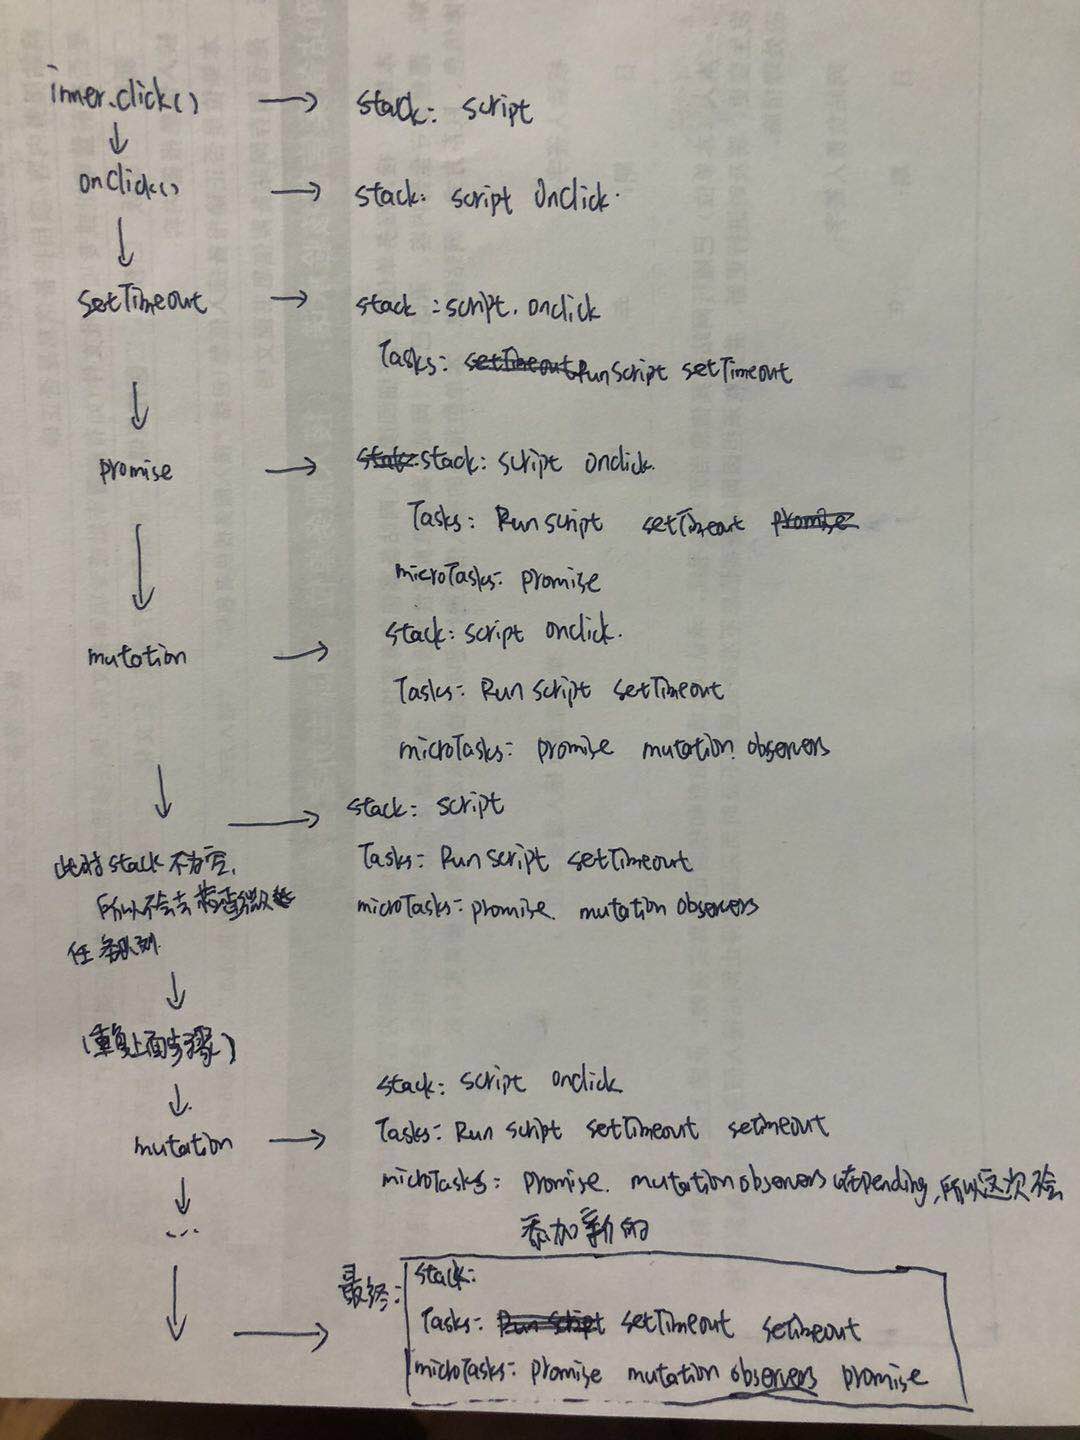 inner.click() → stack: script
↓
onclick() → stack: script onclick.
↓
setTimeout → stack: script. onclick
Tasks: setTimeout Run script setTimeout
↓
promise → stack: script onclick.
Tasks: Run script setTimeout promise
microTasks: promise
↓
mutation → stack: script onclick.
Tasks: Run script setTimeout
microTasks: promise mutation observers
↓
→ stack: script
Tasks: Run script setTimeout
microTasks: promise. mutation observers
此时stack不为空,
所以不会去检查微
任务队列.
↓
(重复上面步骤)
↓
mutation → stack: script onclick
Tasks: Run script setTimeout setimeout
microTasks: promise. mutation observers pending,所以这次不会
添加新的
↓
...
↓
→ 最终: stack:
Tasks: Run script setTimeout setimeout
microTasks: promise mutation observers promise